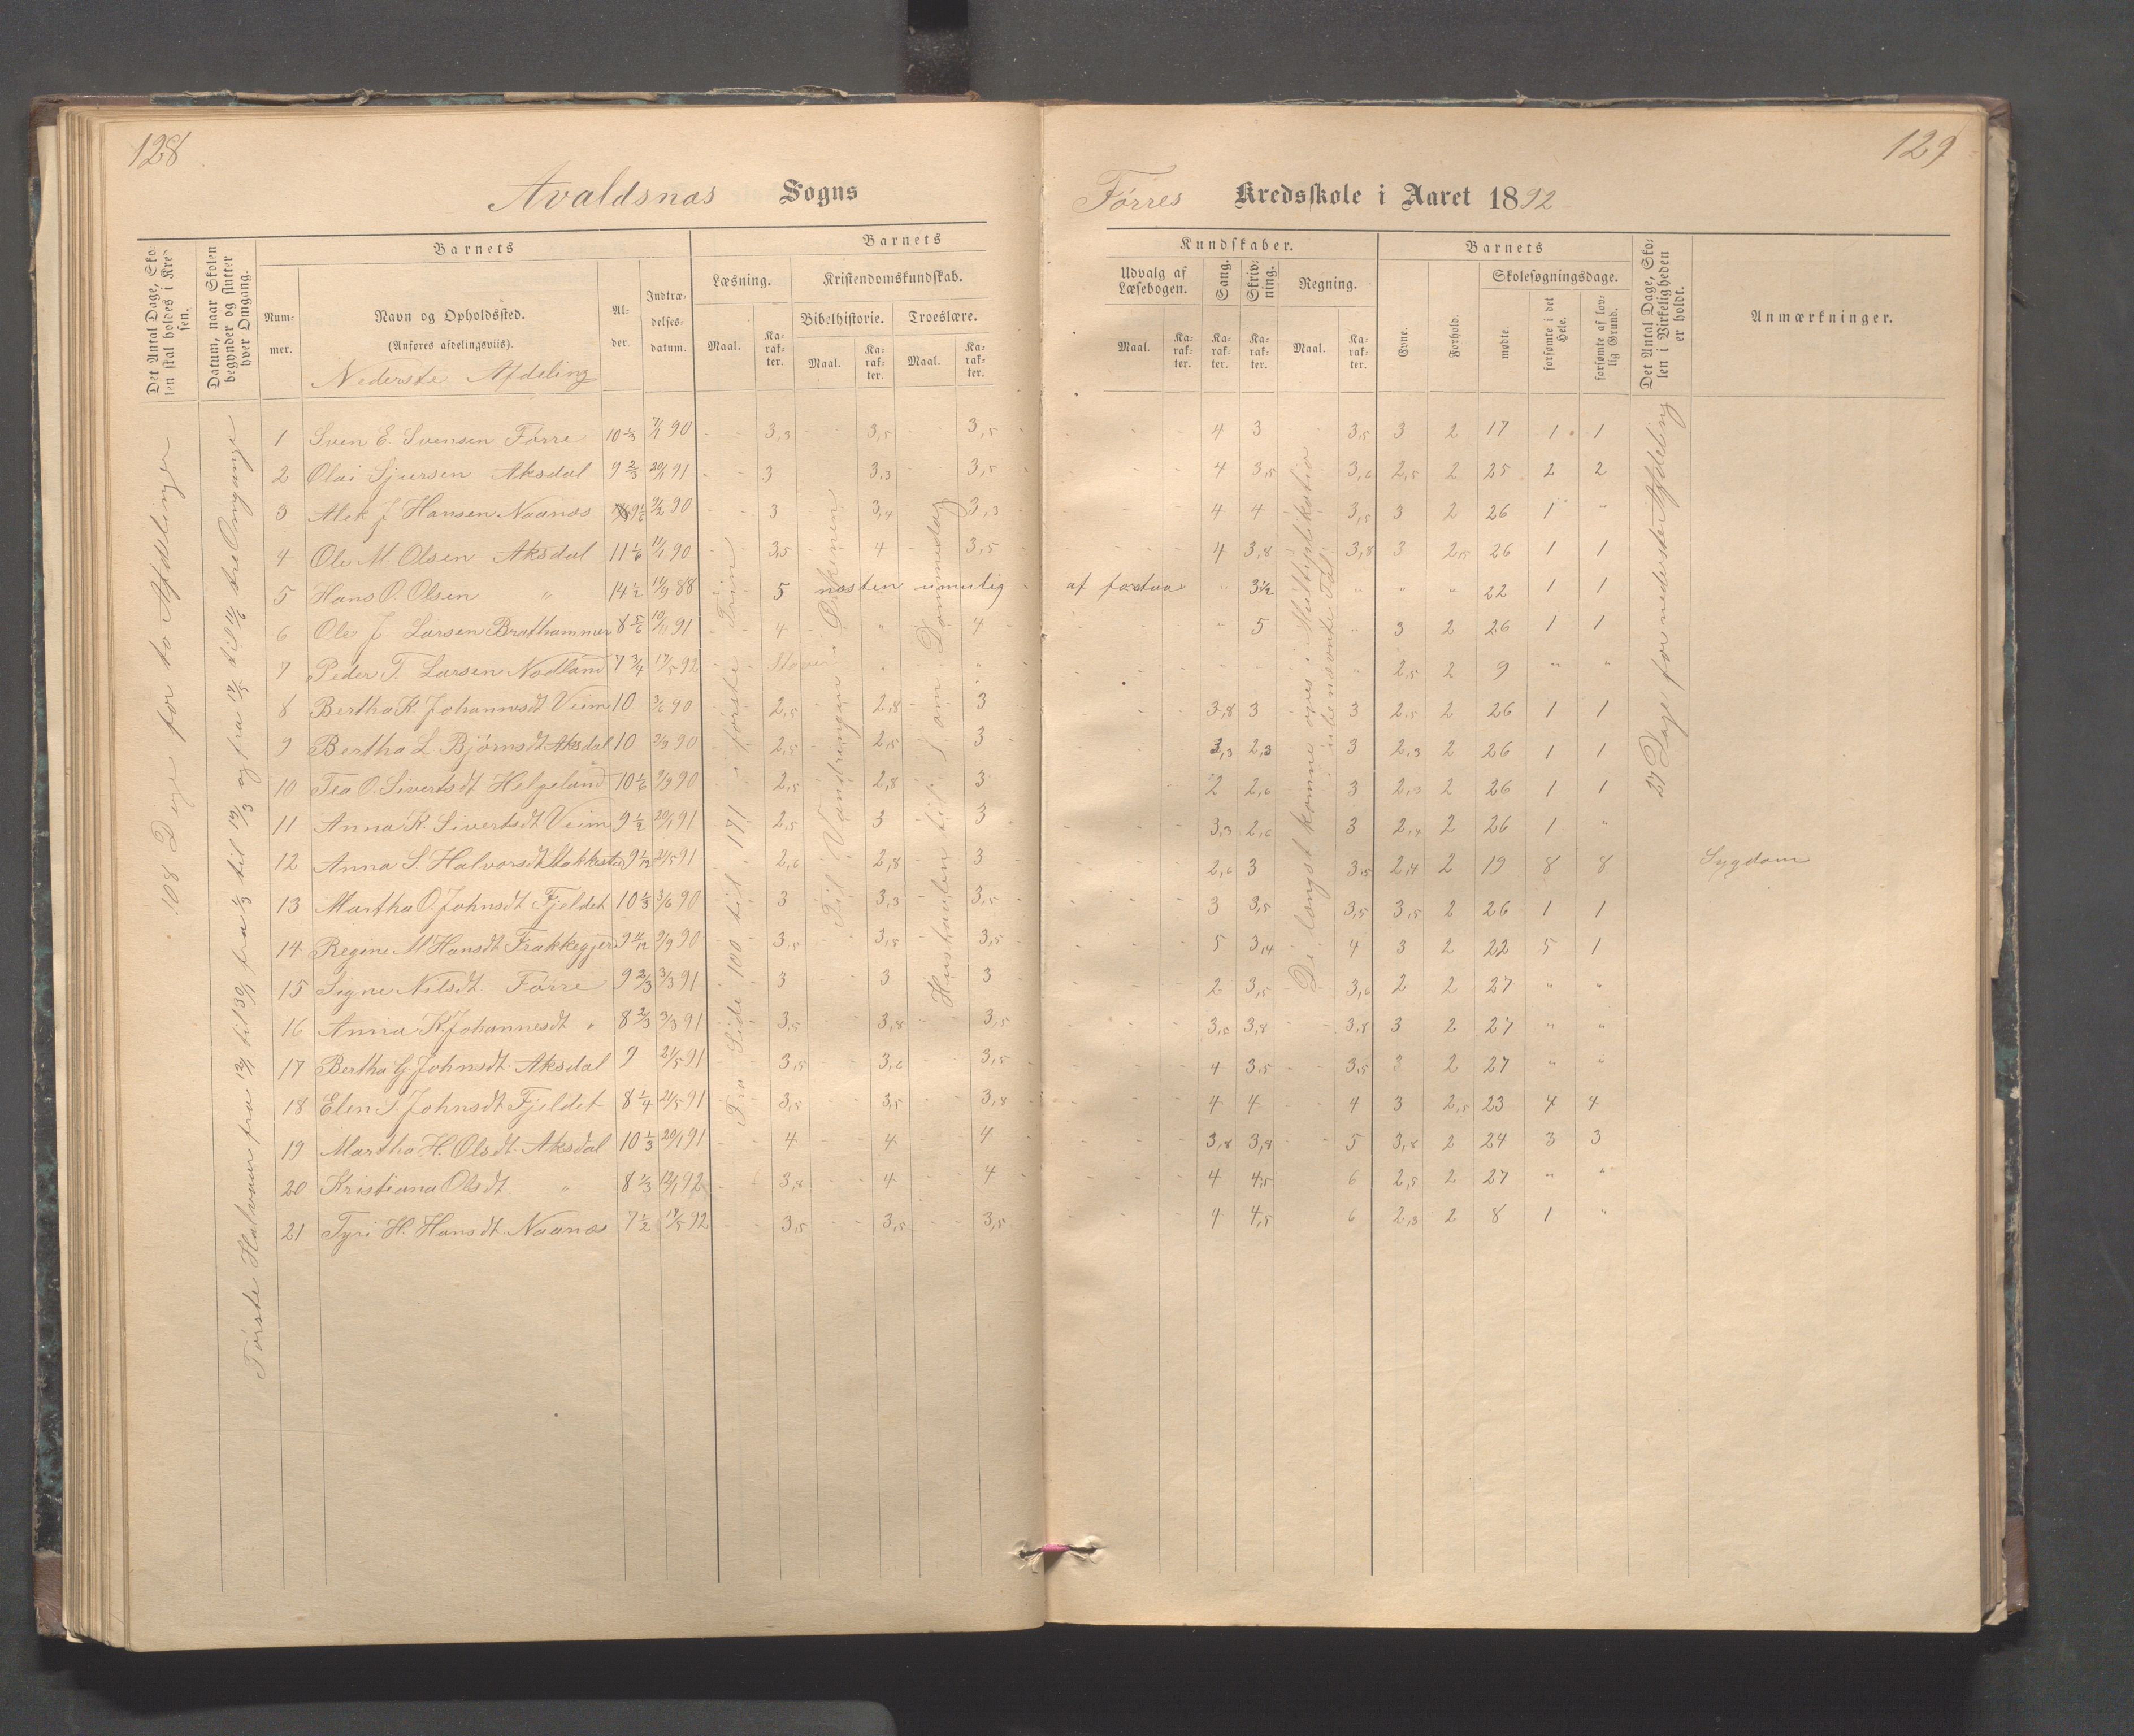 128
129
Avaldsnæs Sogns
Førres Kredsskole i Aaret 1892
Det Antal Dage, Skolen skal holdes i Kredsen.
Datum, naar Skolen begynder og slutter hver Omgang.
Barnets
Nummer.
Navn og Opholdssted.
(Anføres afdelingsviis).
Nederste Afdeling
Alder.
Indtrædelsesdatum.
Barnets
Læsning.
Maal.
Karakter.
Kristendomskundskab.
Bibelhistorie.
Maal.
Karakter.
Troeslære.
Maal.
Karakter.
Kundskaber.
Udvalg af Læsebogen.
Maal.
Karakter.
Sang.
Karakter.
Skrivning.
Karakter.
Regning.
Maal.
Karakter.
Barnets
Evne.
Forhold.
Skolesøgningsdage.
mødte.
forsømte i det Hele.
forsømte af lovlig Grund.
Det Antal Dage, Skolen i Virkeligheden er holdt.
Anmærkninger.
108 Dage for to Afdelinger
Første Halvaar fra 12/1 til 30/1 fra 1/3 til 19/3 og fra 17/5 til 11/6 tre Omgange
Fra Side 100 til 171 i første Trin
Til Vandringen i Ørkenen
Hustavlen til: Som Dommedag
De længst komne øves i Multiplikation i ubenævnte Tal
27 Dage for nederste Afdeling
1 Sven E. Svensen Førre 10 1/3 7/1 90 3,3 3,5 3,5 4 3 3,5 3 2 17 1 1
2 Olai Sjursen Aksdal 9 2/3 20/1 91 3 3,3 3,5 4 3,5 3,6 2,5 2 25 2 2
3 Alek J Hansen Naanes 9 1/6 9/2 90 3 3,4 3,3 4 4 3,5 3 2 26 1 "
4 Ole M. Olsen Aksdal 11 1/6 11/1 90 3,5 4 3,5 4 3,8 3,8 3 2,5 26 1 1
5 Hans O. Olsen " 14 1/2 11/9 88 5 næsten umulig af forstaa " 3 1/2 " " " 22 1 1
6 Ole J Larsen Brathammer 8 5/6 10/11 91 4 " 4 5 " 3 2 26 1 1
7 Peder T. Larsen Nodland 7 3/4 17/5 92 Staver " " " 2,5 2 9 " "
8 Bertha K Johannesdt Veim 10 3/6 90 2,5 2,8 3 3,8 3 3 2,5 2 26 1 1
9 Bertha L. Bjørnsdt Aksdal 10 9/9 90 2,5 2,5 3 3,3 2,3 3 2,3 2 26 1 1
10 Tea O. Sivertsdt Helgeland 10 1/6 9/9 90 2,5 2,8 3 2 2,6 3 2,3 2 26 1 1
11 Anna K. Sivertsdt Veim 9 1/2 20/1 91 2,5 3 3 3,3 2,6 3 2,4 2 26 1 "
12 Anna S. Halvorsdt Stakkested 9 1/12 21/5 91 2,6 2,8 3 2,6 3 3,5 2,4 2 19 8 8 Sygdom
13 Martha O. Johnsdt Fjeldet 10 1/3 3/6 90 3 3,3 3,5 3 3,5 3,5 3,5 2 26 1 1
14 Regine M Hansdt Frakkegjerd 9 11/12 9/9 90 3,5 3,5 3,5 5 3,4 4 3 2 22 5 1
15 Signe Nilsdt. Førre 9 2/3 3/3 91 3 3 3 2 3,5 3,6 2 2 27 " "
16 Anna K. Johannesdt " 8 2/3 3/3 91 3,5 3,8 3,5 3,5 3,8 3,8 3 2 27 " "
17 Bertha G. Johnsdt. Aksdal 9 21/5 91 3,5 3,6 3,5 4 3,5 3,5 3 2 27 " "
18 Elen S. Johnsdt Fjeldet 8 1/4 21/5 91 3,5 3,5 3,8 4 4 4 3 2,5 23 4 4
19 Martha H. Olsdt. Aksdal 10 1/3 20/1 91 4 4 4 3,8 3,8 5 3,8 2 24 3 3
20 Kristiana Olsdt " 8 1/3 12/1 92 3,8 4 4 4 4,5 6 2,5 2 27 " "
21 Tyri H. Hansdt Naanes 7 1/2 17/5 92 3,5 3,5 3,5 4 4,5 6 2,3 2 8 1 "